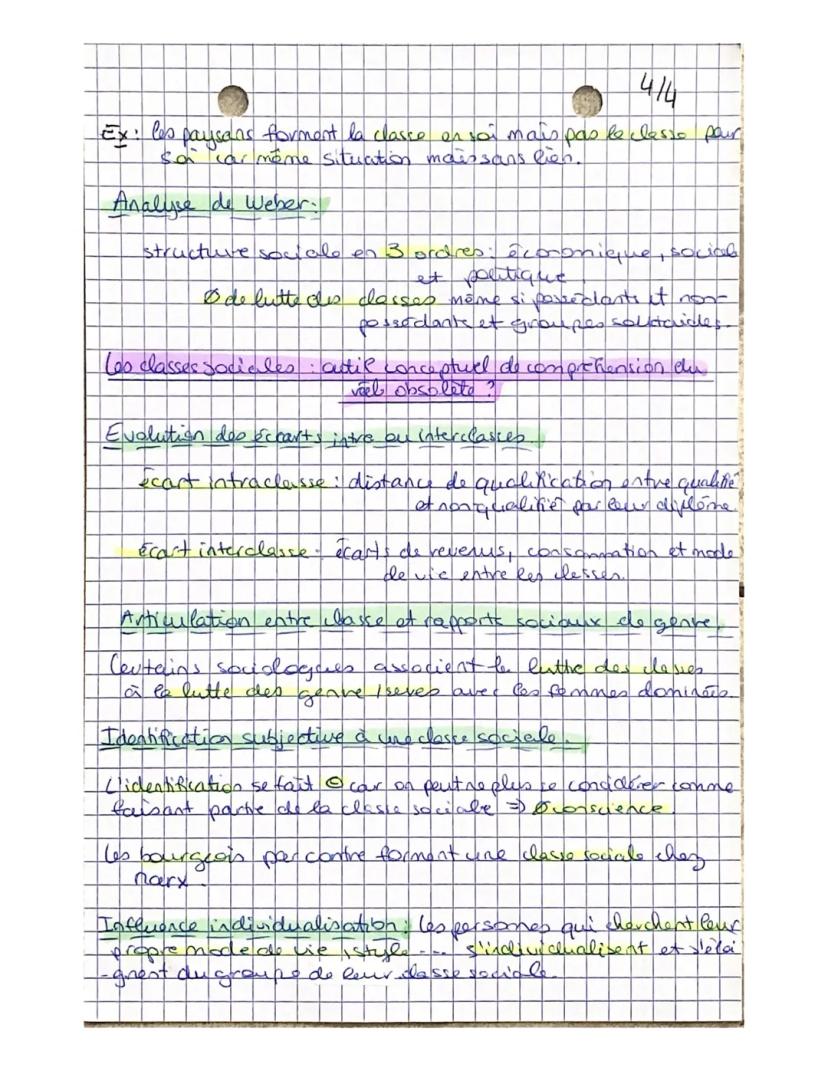 4/4
Ex : les paysans forment la classe en soi mais pas la classe pour
soi car même situation mais sans lien.
Analyse de Weber :
structure sociale en 3 ordres : économique, sociale
et politique
Ø de lutte des classes même si possédants et non-
possédants et groupes solidaires.
Les classes sociales : outil conceptuel de compréhension du
réel obsolète ?
Evolution des écarts intra ou interclasses
écart intraclasse : distance de qualification entre qualifié
et non qualifié par leur diplôme
écart interclasse : écarts de revenus, consommation et mode
de vie entre les classes.
Articulation entre classe et rapports sociaux de genre.
Certains sociologues associent la lutte des classes
à la lutte des genre / sexes avec les femmes dominées.
Identification subjective à une classe sociale.
L'identification se fait ⊖ car on peut ne plus se considérer comme
faisant partie de la classe sociale ⇒ Ø conscience
Les bourgeois par contre forment une classe sociale chez
Marx.
Influence individualisation : les personnes qui cherchent leur
propre mode de vie, style ... s'individualisent et s'éloi
-gnent du groupe de leur classe sociale.